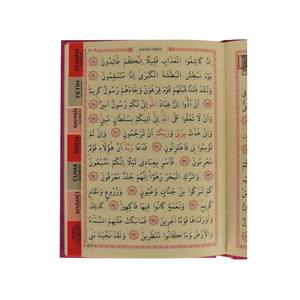 اِنَّا كَاشِفُوا الْعَذَابِ قَلٖيلًا اِنَّكُمْ عَٓائِدُونَ
يَوْمَ نَبْطِشُ الْبَطْشَةَ الْكُبْرٰى اِنَّا مُنْتَقِمُونَ
وَلَقَدْ فَتَنَّا قَبْلَهُمْ قَوْمَ فِرْعَوْنَ وَجَٓاءَهُمْ رَسُولٌ كَرٖيمٌ
اَنْ اَدُّٓوا اِلَيَّ عِبَادَ اللّٰهِ اِنّٖي لَكُمْ رَسُولٌ اَمٖينٌ
وَاَنْ لَا تَعْلُوا عَلَى اللّٰهِ اِنّٖٓي اٰتٖيكُمْ بِسُلْطَانٍ مُبٖينٍ
وَاِنّٖي عُذْتُ بِرَبّٖي وَرَبِّكُمْ اَنْ تَرْجُمُونِ وَاِنْ لَمْ
تُؤْمِنُوا لٖي فَاعْتَزِلُونِ فَدَعَا رَبَّهُٓ اَنَّ هٰٓؤُلَٓاءِ قَوْمٌ
مُجْرِمُونَ فَاَسْرِ بِعِبَادٖي لَيْلًا اِنَّكُمْ مُتَّبَعُونَ
وَاتْرُكِ الْبَحْرَ رَهْوًا اِنَّهُمْ جُنْدٌ مُغْرَقُونَ
كَمْ تَرَكُوا مِنْ جَنَّاتٍ وَعُيُونٍ وَزُرُوعٍ وَمَقَامٍ
كَرٖيمٍ وَنَعْمَةٍ كَانُوا فٖيهَا فَاكِهٖينَ كَذٰلِكَ
وَاَوْرَثْنَاهَا قَوْمًا اٰخَرٖينَ فَمَا بَكَتْ عَلَيْهِمُ السَّمَٓاءُ
وَالْاَرْضُ وَمَا كَانُوا مُنْظَرٖينَ وَلَقَدْ نَجَّيْنَا بَنٖٓي
DUHAN
FETİH
RAHMAN
VAKIA
CUMA
KIYAMET